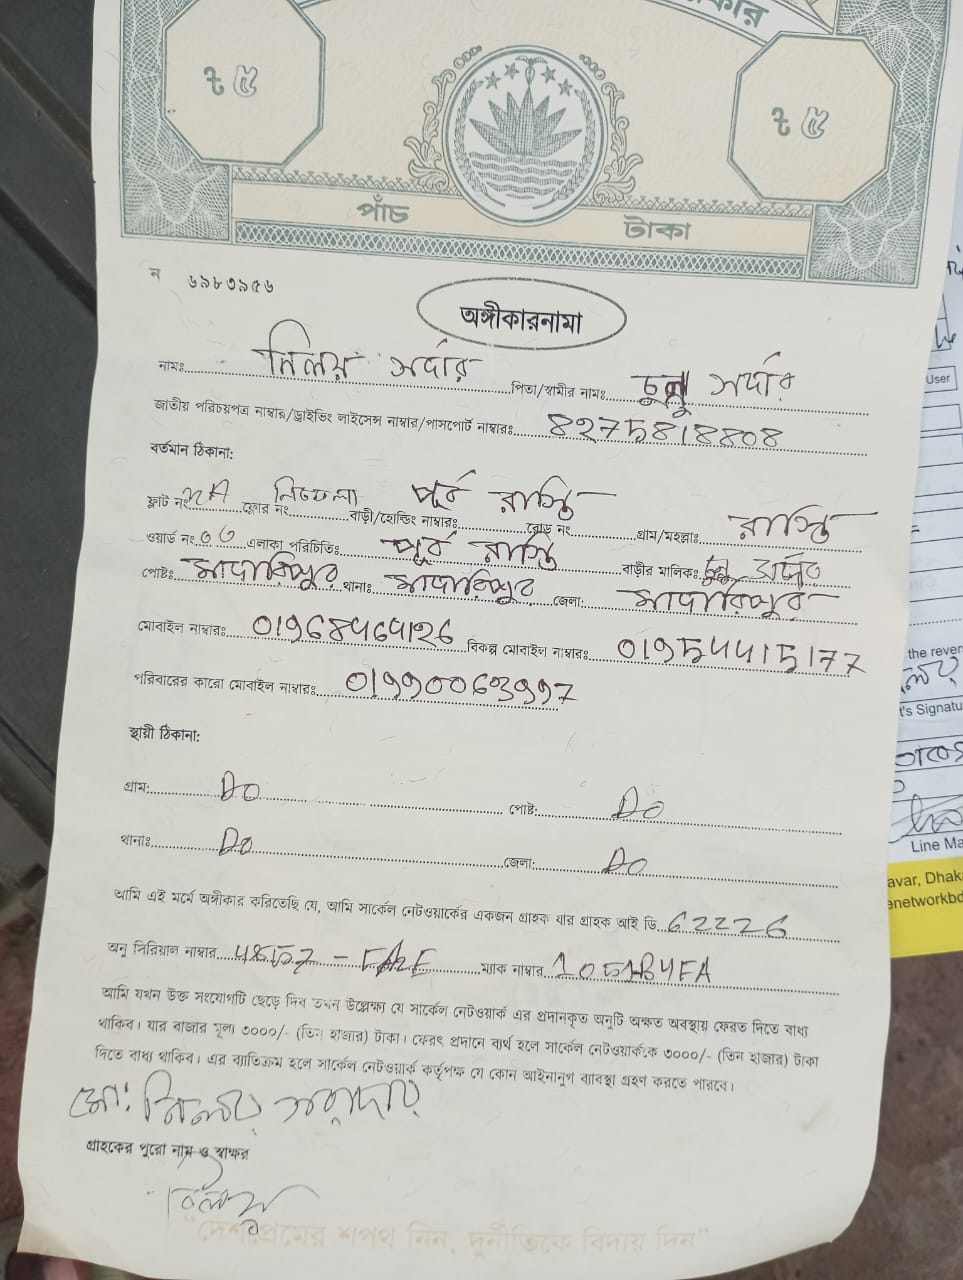 ৳ ৫
৳ ৫
পাঁচ টাকা
ন ৬৯৮৩৯৫৬
অঙ্গীকারনামা
নামঃ নিলয় সর্দার পিতা/স্বামীর নামঃ চুন্নু সর্দার
জাতীয় পরিচয়পত্র নাম্বার/ড্রাইভিং লাইসেন্স নাম্বার/পাসপোর্ট নাম্বারঃ 8275818808
বর্তমান ঠিকানা:
ফ্লাট নং NA ফ্লোর নং নিচতলা বাড়ী/হোল্ডিং নাম্বারঃ পূর্ব রাস্তি রোড নং গ্রাম/মহল্লাঃ রাস্তি
ওয়ার্ড নং 06 এলাকা পরিচিতিঃ পূর্ব রাস্তি বাড়ীর মালিকঃ চুন্নু সর্দার
পোষ্টঃ মাদারিপুর থানাঃ মাদারিপুর জেলা: মাদারিপুর
মোবাইল নাম্বারঃ 01968464126 বিকল্প মোবাইল নাম্বারঃ 01954415177
পরিবারের কারো মোবাইল নাম্বারঃ 01990063997
স্থায়ী ঠিকানা:
গ্রাম: Do পোষ্ট: Do
থানাঃ Do জেলা: Do
আমি এই মর্মে অঙ্গীকার করিতেছি যে, আমি সার্কেল নেটওয়ার্কের একজন গ্রাহক যার গ্রাহক আই ডি 62226
অনু সিরিয়াল নাম্বার ম্যাক নাম্বার 1051B4FA
আমি যখন উক্ত সংযোগটি ছেড়ে দিব তখন উল্লেক্ষ্য যে সার্কেল নেটওয়ার্ক এর প্রদানকৃত অনুটি অক্ষত অবস্থায় ফেরত দিতে বাধ্য
থাকিব। যার বাজার মূল্য ৩০০০/- (তিন হাজার) টাকা। ফেরৎ প্রদানে ব্যর্থ হলে সার্কেল নেটওয়ার্ককে ৩০০০/- (তিন হাজার) টাকা
দিতে বাধ্য থাকিব। এর ব্যাতিক্রম হলে সার্কেল নেটওয়ার্ক কর্তৃপক্ষ যে কোন আইনানুগ ব্যাবস্থা গ্রহণ করতে পারবে।
মো: নিলয় সরদার
গ্রাহকের পুরো নাম ও স্বাক্ষর
নিলয়
"দেশপ্রেমের শপথ নিন, দুর্নীতিকে বিদায় দিন"
User
the rever
t's Signatu
Line Ma
avar, Dhak
enetworkbd